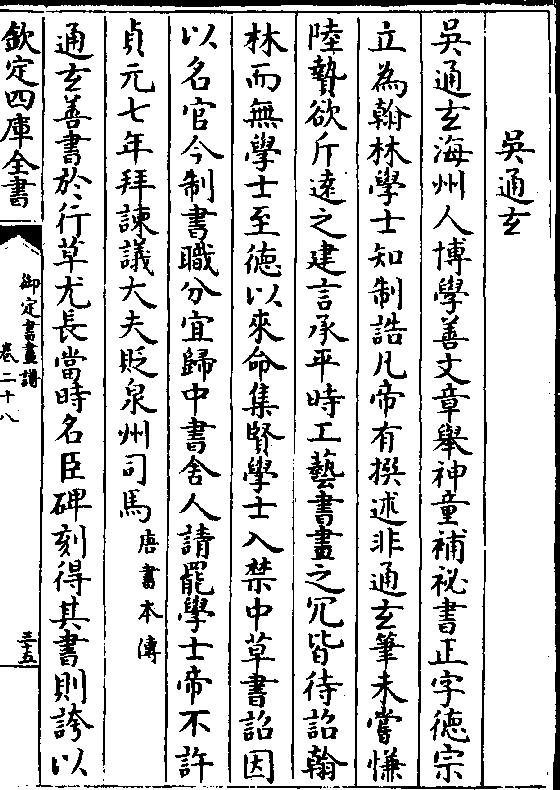 吳通玄
吳通玄海州人博學善文章舉神童補祕書正字徳宗
立為翰林學士知制誥凡帝有撰述非通玄筆未嘗慊
陸贄欲斥逺之建言承平時工藝書畫之冗皆待詔翰
林而無學士至徳以來命集賢學士入禁中草書詔因
以名官今制書職分宜歸中書舍人請罷學士帝不許
貞元七年拜諫議大夫貶泉州司馬唐書本傳
通玄善書於行草尤長當時名臣碑刻得其書則誇以
欽定四庫全書
御定書畫譜
卷二十八
三十五